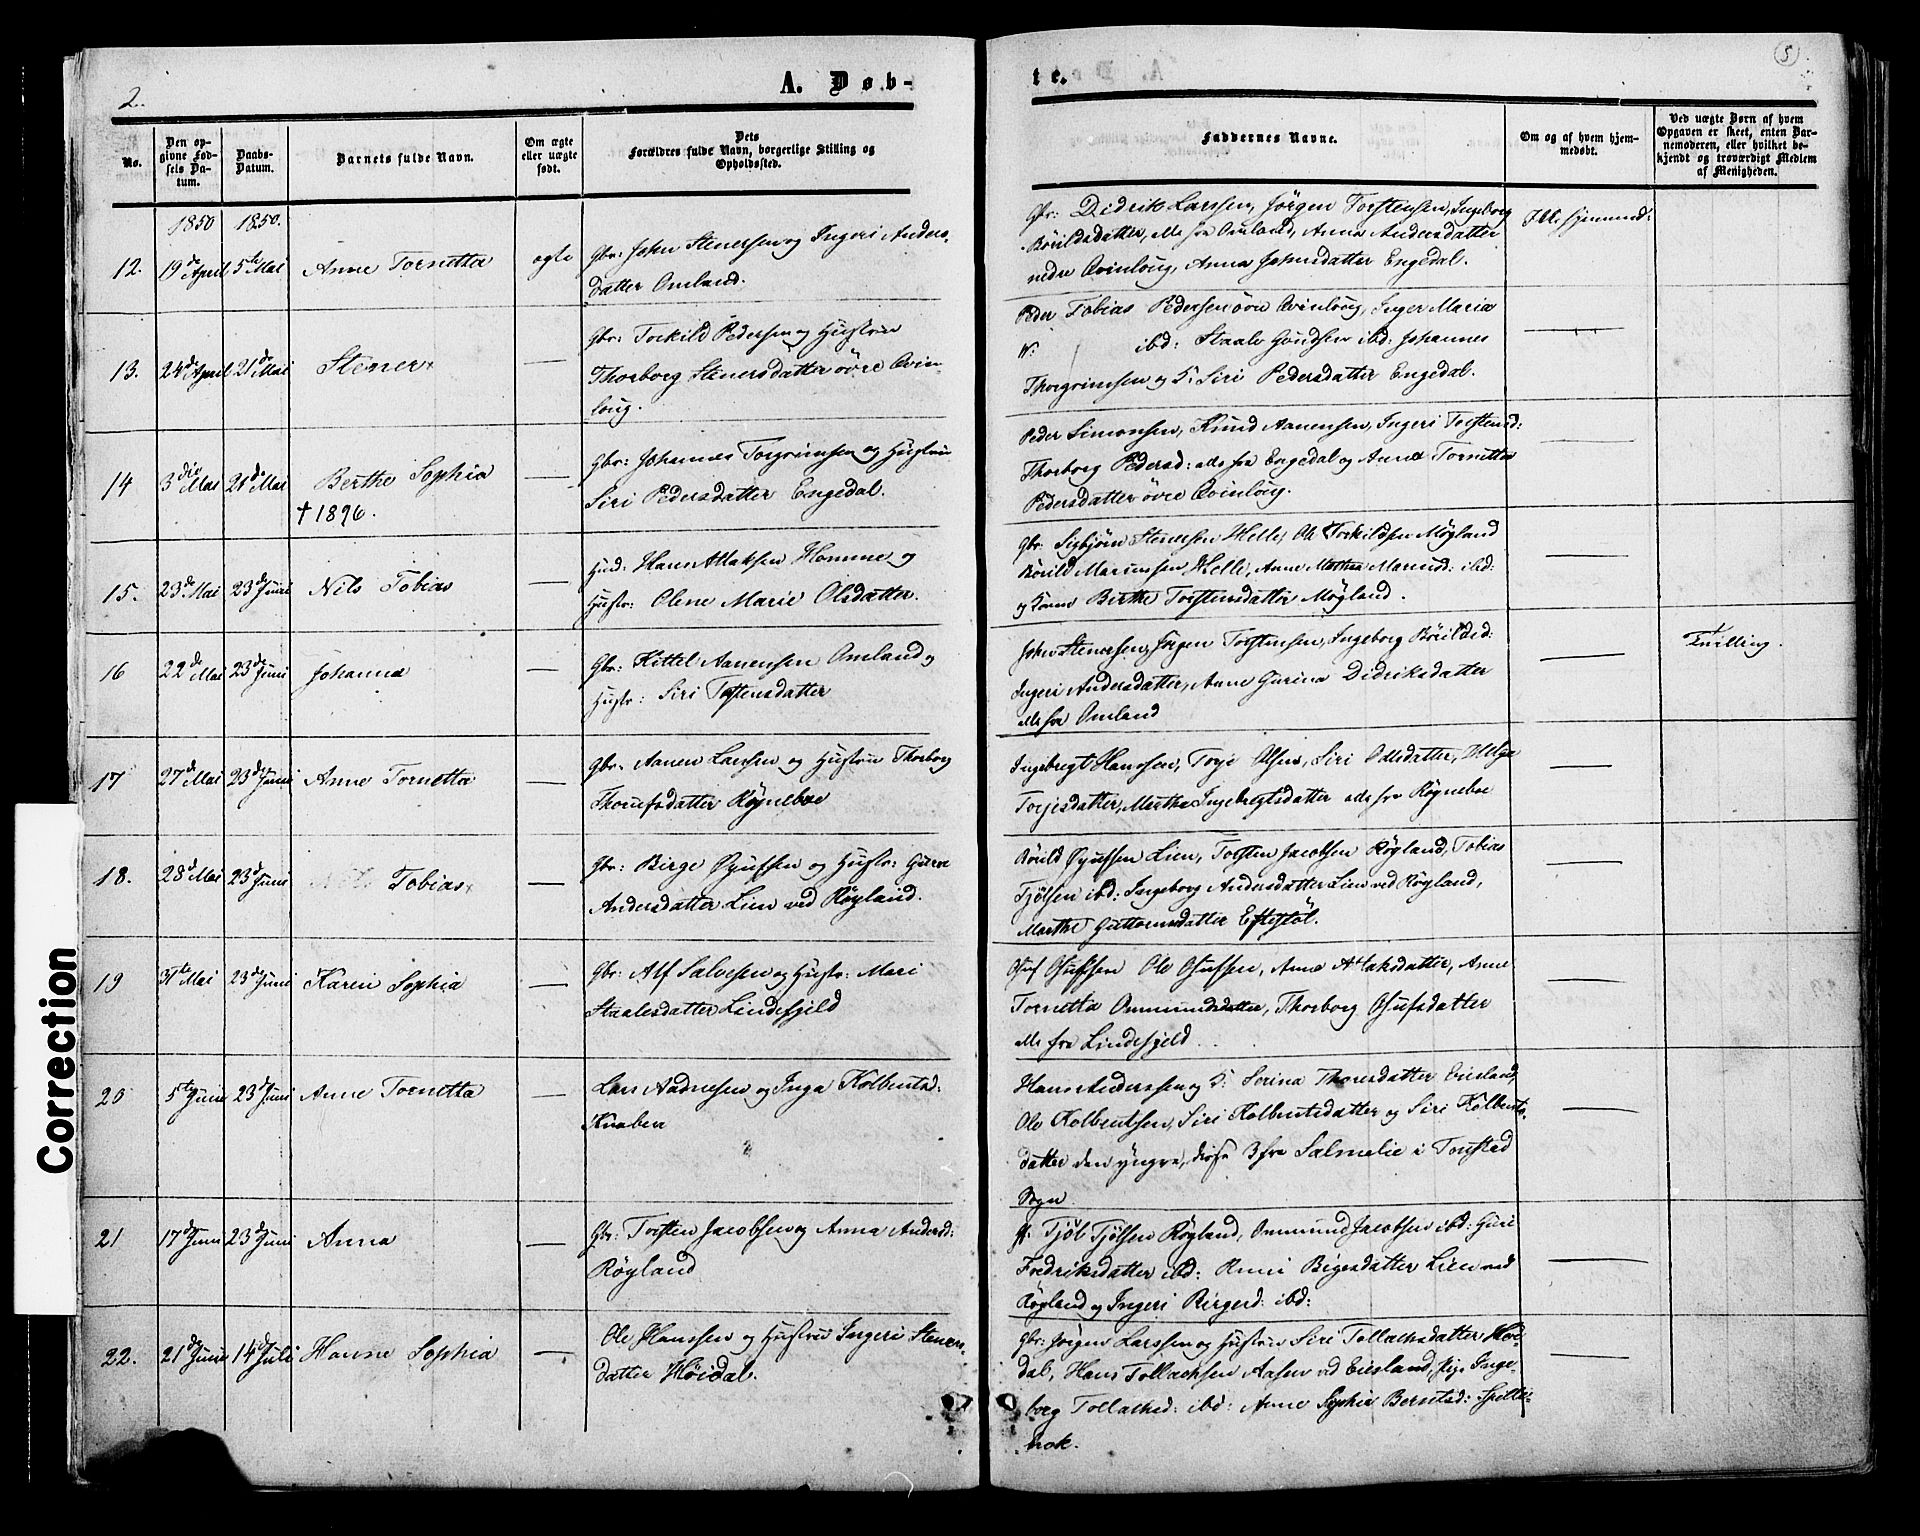 2.
A. Døb-
te.
5
No.
Den op-
givne Fød-
sels Da-
tum.
Daabs-
Datum.
Barnets fulde Navn.
Om ægte
eller uægte
født.
Dets
Forældres fulde Navn, borgerlige Stilling og
Opholdssted.
Faddernes Navne.
Om og af hvem hjem-
medøbt.
Ved uægte Børn af hvem
Opgaven er skeet, enten Bar-
nemoderen, eller hvilket be-
kjendt og troværdigt Medlem
af Menigheden.
1850 1850.
12. 19de April 5te Mai Anne Tornetta ægte
Gbr: John Stenersen og Ingeri Anders-
datter Omland.
Gbr: Didrik Larssen, Jörgen Torstensen, Ingeborg
Börildsdatter, alle fra Omland, Anna Andersdatter
nedre Qvinloug, Anna Johnsdatter Engedal.
13. 24de April 21de Mai Stener
Gbr: Torkild Pedersen og Hustrue
Thorborg Stenersdatter övre Qvin-
loug.
Peder Tobias Pedersen övre Qvinloug, Inger Maria
ibd: Staale Gundsen ibd: Johannes
Thorgrimsen og K. Siri Pedersdatter Engedal.
14 3die Mai 21de Mai Berthe Sophia
† 1896.
Gbr: Johannes Torgrimsen og Hustrue
Siri Pedersdatter Engedal.
Peder Simonsen, Knud Aanensen, Ingeri Torstensd:
Thorborg Pedersd: alle fra Engedal og Anne Tornetta
Pedersdatter övre Qvinloug.
15. 23de Mai 23de Juni Nils Tobias
Husd: Hans Atlaksen Homme og
Hustr: Olene Marie Olsdatter.
Gbr. Sigbjörn Stenersen Helle, Ole Torkildsen Mögland
Börild Mariussen Helle, Anne Marthea Mariusd: ibd:
og Kone Birthe Torstensdatter Mögland.
16 22de Mai 23de Juni Johanna
Gbr: Kittel Aanensen Omland og
Hustr: Siri Tostensdatter
John Stenersen, Jörgen Torstensen, Ingeborg Börildsd:
Ingeri Andersdatter, Anne Gurina Didriksdatter
alle fra Omland
Tvilling.
17 27de Mai 23de Juni Anne Tornetta
Gbr. Aanen Larssen og Hustrue Thorborg
Thorufsdatter Røgneboe
Ingebregt Hanssen, Torje Olsen, Siri Odlsdatter, Helga
Torjesdatter, Marthe Ingebregtsdatter alle fra Røgneboe
18. 28de Mai 23de Juni Nils Tobias
Gbr: Birge Øyufsen og Hustr: Gurine
Andersdatter Lien ved Røyland.
Börild Øyufsen Lien, Torsten Jacobsen Røyland, Tobias
Tjölsen ibd: Ingeborg Andersdatter Lien ved Røyland,
Marthe Guttormsdatter Eftestöl.
19 31te Mai 23de Juni Karen Sophia
Gbr: Alf Salvesen og Hustr: Mari
Staalesdatter Lindefjeld
Osuf Osufsen Ole Osufsen, Anne Atlaksdatter, Anne
Tornetta Ommundsdatter, Thorborg Osufsdatter
alle fra Lindefjeld
20 5te Juni 23de Juni Anne Tornetta
Lars Aadnesen og Inga Kolbentsd:
Knaben
Hans Anderssen og K: Serina Thoresdatter Eiesland,
Ole Kolbentsen, Siri Kolbentsdatter og Siri Kolbents-
datter den yngre, disse 3 fra Salmelie i Tonstad
Sogn
21 17de Juni 23de Juni Anna
Gbr: Torsten Jacobsen og Anna Andersd:
Røyland
Gbr: Tjöl Tjölsen Røyland, Ommund Jacobsen ibd: Guri
Fredriksdatter ibd: Anni Bigesdatter Lien ved
Røyland og Ingeri Birgesd: ibd:
22. 21de Juni 14de Juli Hanne Sophia
Ole Hanssen og Hustrue Ingeri Stenen-
datter Höidal.
Gbr: Jörgen Larssen og Hustrue Siri Tollachsdatter Höi-
dal, Hans Tollachsen Aasen ved Eiesland, Pige Inge-
borg Tollachsd: ibd: Anne Sophie Berntsd: Spille-
brok.
Correction